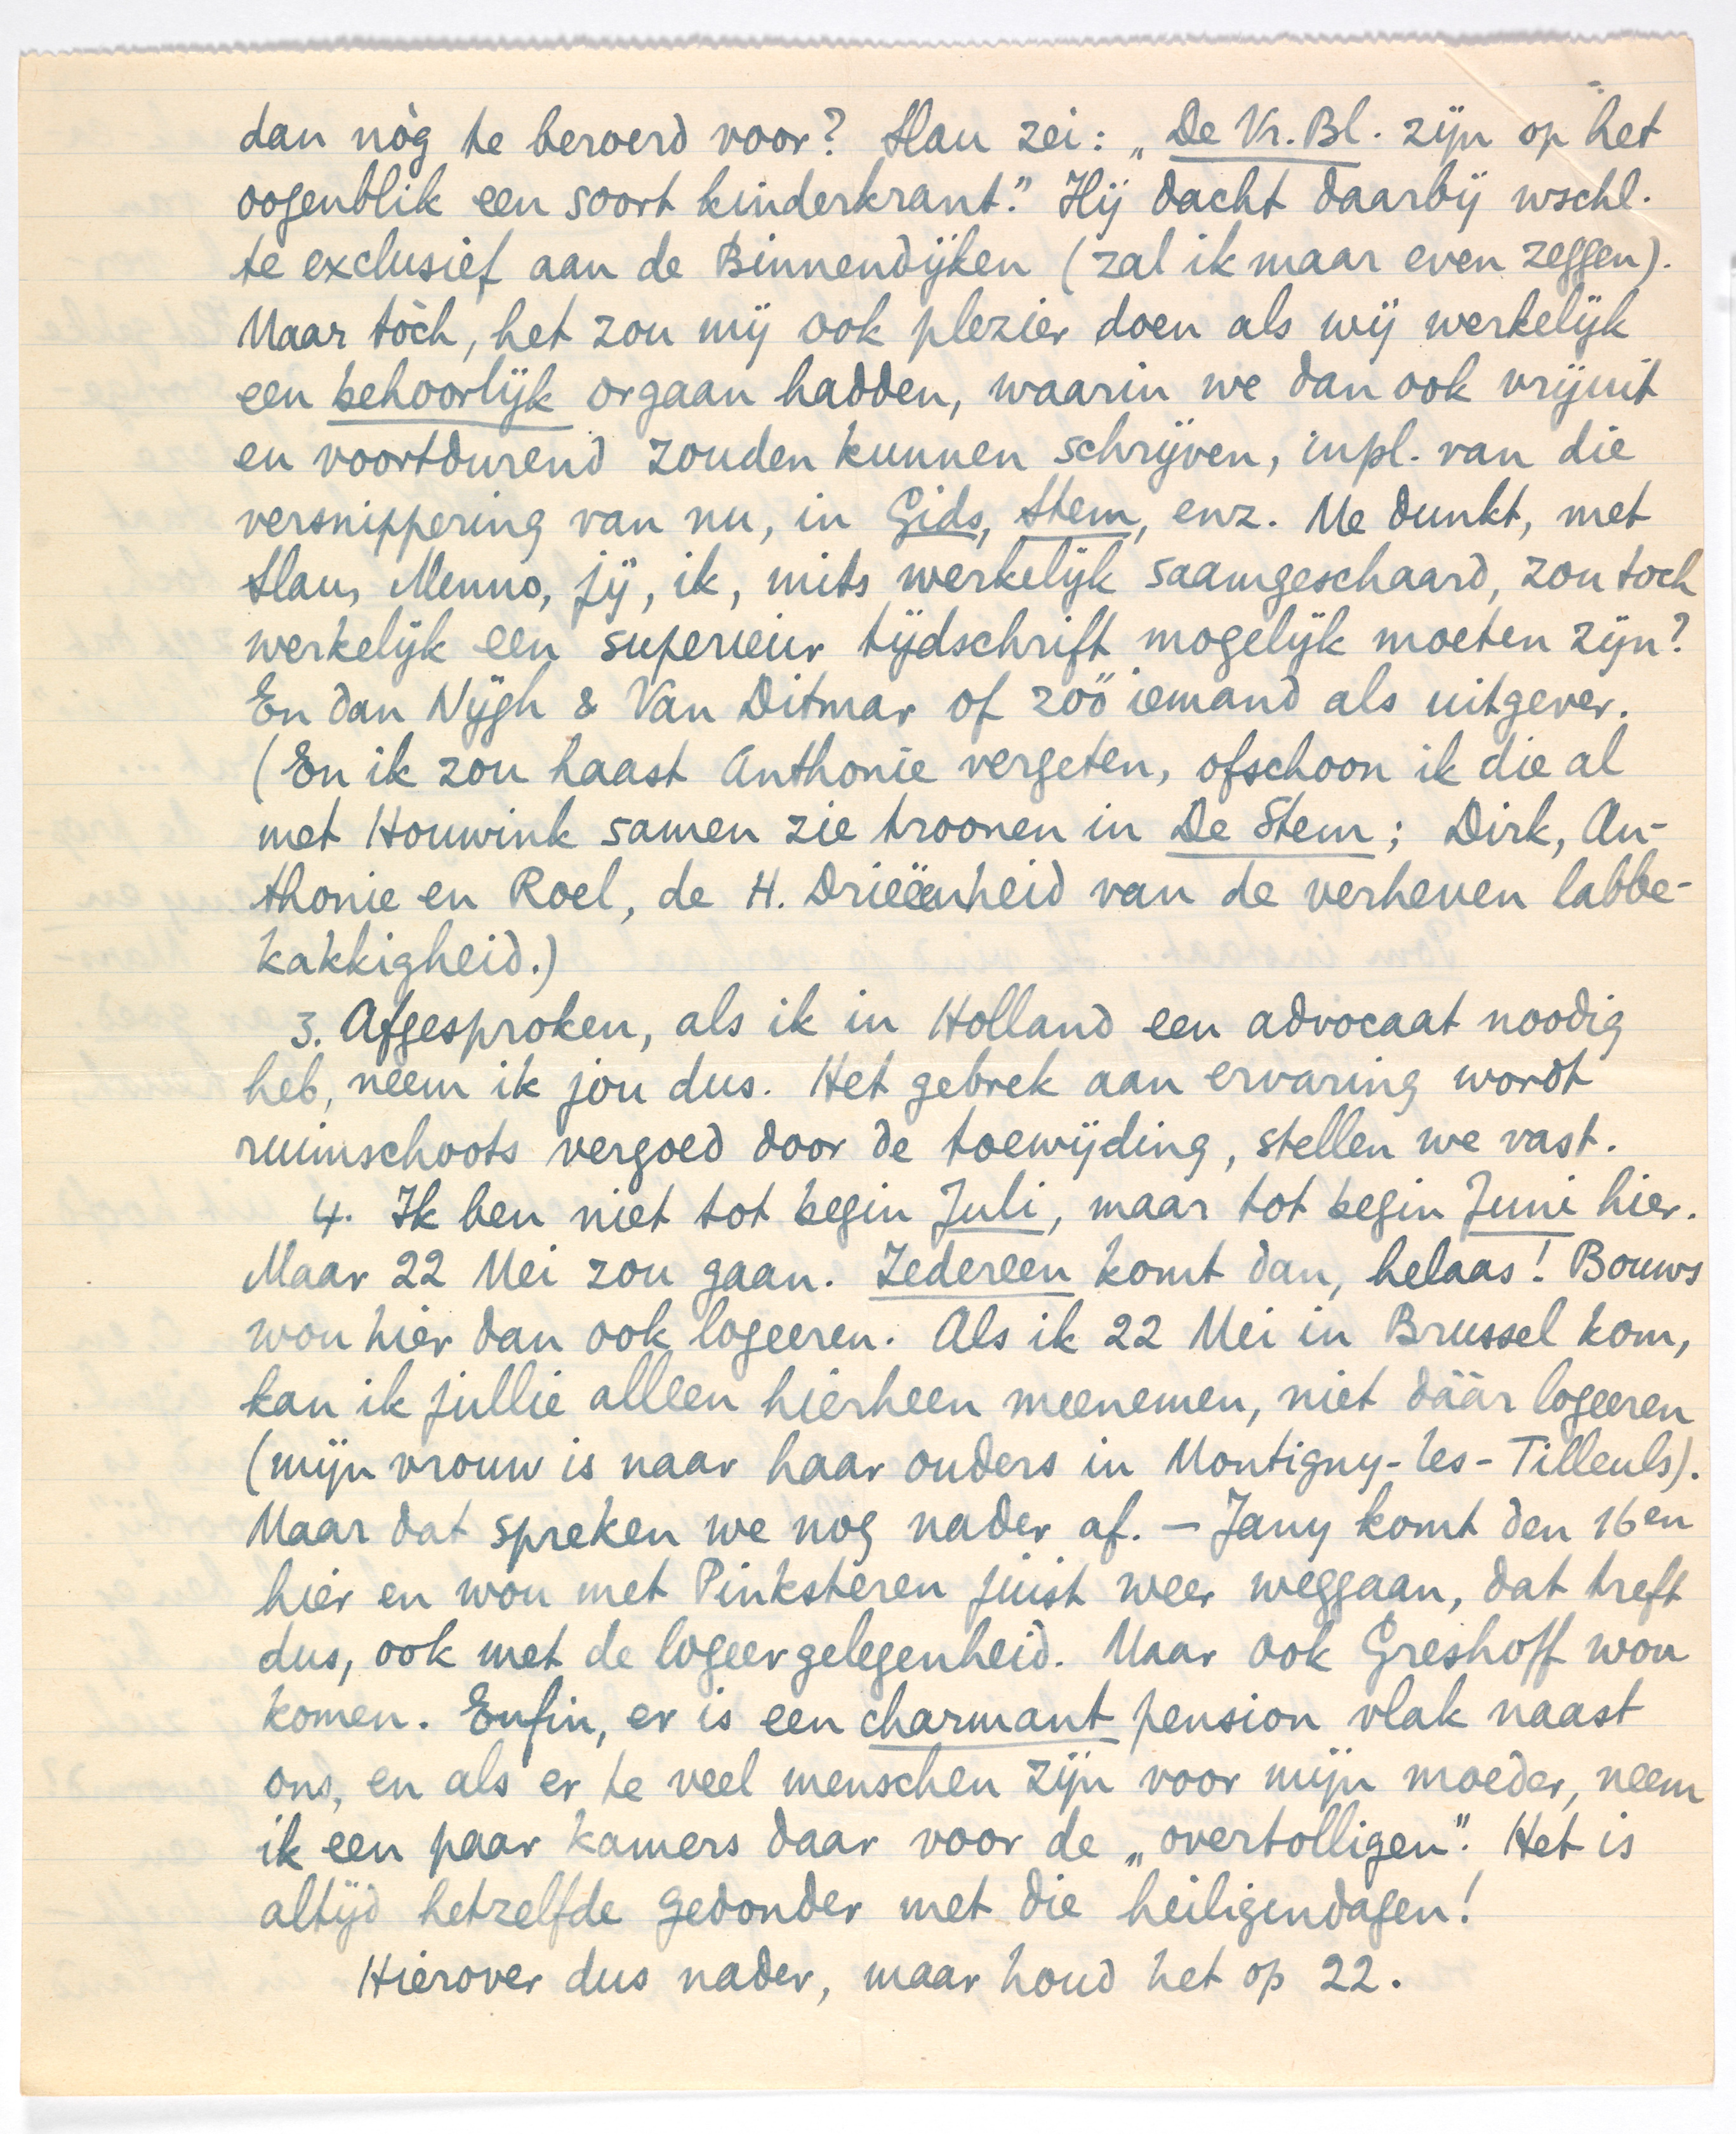 dan nòg te beroerd voor? Slau zei: „De Vr. Bl. zijn op het
oogenblik een soort kinderkrant." Hij dacht daarbij wschl.
te exclusief aan de Binnendijken (zal ik maar even zeggen).
Maar tòch, het zou mij ook plezier doen als wij werkelijk
een behoorlijk orgaan hadden, waarin we dan ook vrijuit
en voortdurend zouden kunnen schrijven, inpl. van die
versnippering van nu, in Gids, Stem, enz. Me dunkt, met
Slau, Menno, jij, ik, mits werkelijk saamgeschaard, zou toch
werkelijk een superieur tijdschrift mogelijk moeten zijn?
En dan Nijgh & Van Ditmar of zóó iemand als uitgever.
(En ik zou haast Anthonie vergeten, ofschoon ik die al
met Houwink samen zie troonen in De Stem; Dirk, An-
thonie en Roel, de H. Drieëenheid van de verheven labbe-
kakkigheid.)
3. Afgesproken, als ik in Holland een advocaat noodig
heb, neem ik jou dus. Het gebrek aan ervaring wordt
ruimschoots vergoed door de toewijding, stellen we vast.
4. Ik ben niet tot begin Juli, maar tot begin Juni hier.
Maar 22 Mei zou gaan. Iedereen komt dan, helaas! Bouws
wou hier dan ook logeeren. Als ik 22 Mei in Brussel kom,
kan ik jullie alleen hierheen meenemen, niet dáár logeeren
(mijn vrouw is naar haar ouders in Montigny-les-Tilleuls).
Maar dat spreken we nog nader af. – Jany komt den 16en
hier en wou met Pinksteren juist weer weggaan, dat treft
dus, ook met de logeergelegenheid. Maar ook Greshoff wou
komen. Enfin, er is een charmant pension vlak naast
ons, en als er te veel menschen zijn voor mijn moeder, neem
ik een paar kamers daar voor de „overtolligen". Het is
altijd hetzelfde gedonder met die heiligendagen!
Hierover dus nader, maar houd het op 22.